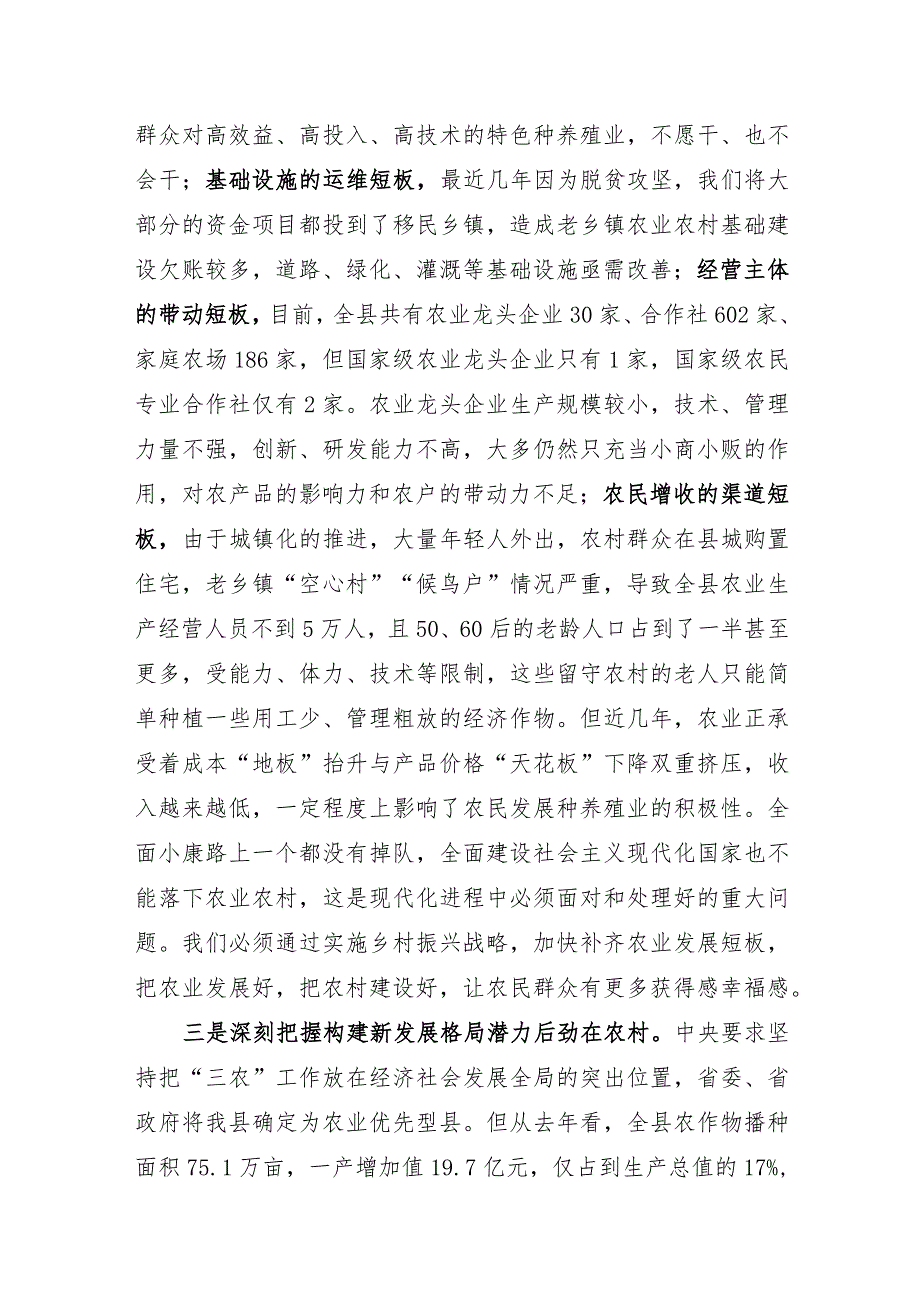 群众对高效益、高投入、高技术的特色种养殖业，不愿干、也不
会干；基础设施的运维短板，最近几年因为脱贫攻坚，我们将大
部分的资金项目都投到了移民乡镇，造成老乡镇农业农村基础建
设欠账较多，道路、绿化、灌溉等基础设施亟需改善；经营主体
的带动短板，目前，全县共有农业龙头企业 30 家、合作社 602 家、
家庭农场 186 家，但国家级农业龙头企业只有 1 家，国家级农民
专业合作社仅有 2 家。农业龙头企业生产规模较小，技术、管理
力量不强，创新、研发能力不高，大多仍然只充当小商小贩的作
用，对农产品的影响力和农户的带动力不足；农民增收的渠道短
板，由于城镇化的推进，大量年轻人外出，农村群众在县城购置
住宅，老乡镇“空心村”“候鸟户”情况严重，导致全县农业生
产经营人员不到 5 万人，且 50、60 后的老龄人口占到了一半甚至
更多，受能力、体力、技术等限制，这些留守农村的老人只能简
单种植一些用工少、管理粗放的经济作物。但近几年，农业正承
受着成本“地板”抬升与产品价格“天花板”下降双重挤压，收
入越来越低，一定程度上影响了农民发展种养殖业的积极性。全
面小康路上一个都没有掉队，全面建设社会主义现代化国家也不
能落下农业农村，这是现代化进程中必须面对和处理好的重大问
题。我们必须通过实施乡村振兴战略，加快补齐农业发展短板，
把农业发展好，把农村建设好，让农民群众有更多获得感幸福感。
三是深刻把握构建新发展格局潜力后劲在农村。中央要求坚
持把“三农”工作放在经济社会发展全局的突出位置，省委、省
政府将我县确定为农业优先型县。但从去年看，全县农作物播种
面积 75.1 万亩，一产增加值 19.7 亿元，仅占到生产总值的 17%，